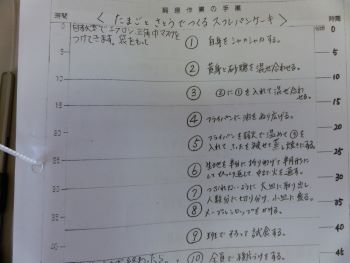 調理操作の手順
時間
<たまごとさとうでつくるスフレパンケーキ>
時間
0
5
10
15
20
25
30
35
40
45
0
5
10
15
20
25
30
35
40
45
自教室でエプロン、三角巾マスクを
つけてきます。袋をもって
① 白身をシャカシャカする。
② 黄身と砂糖を混ぜ合わせる。
③ ②に①を入れて混ぜ合わ
せる。
④ フライパンに油をぬり広げる。
⑤ フライパンを弱火で温めて③を
入れてふたを被せて蒸し焼きにする。
⑥ 生地を半分に折り曲げて半月形に
してひっくり返して中まで火を通す。
⑦ つぶれないように大皿に取り出し
人数分に切り分け、小皿に盛る。
⑧ メープルシロップをかける。
⑨ 班でそろって試食する。
⑩ 全員で後片付けをする。
終わったら、